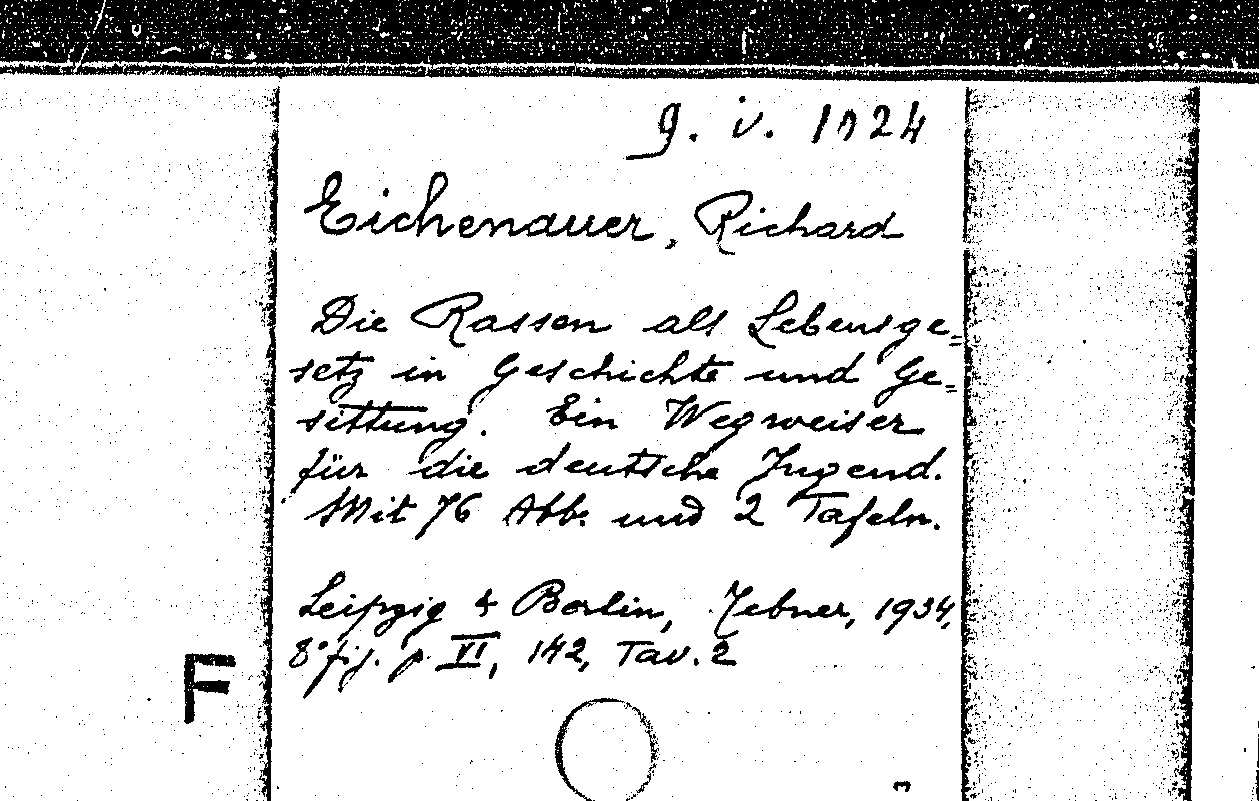 9. V. 1024
Eichenauer, Richard
Die Rassen als Lebensge=
setz in Geschichte und Ge=
sittung. Ein Wegweiser
für die deutsche Jugend.
Mit 76 Abb. und 2 Tafeln.
Leipzig & Berlin, Tebner, 1934,
8° fig. p. VI, 142, Tav. 2
F